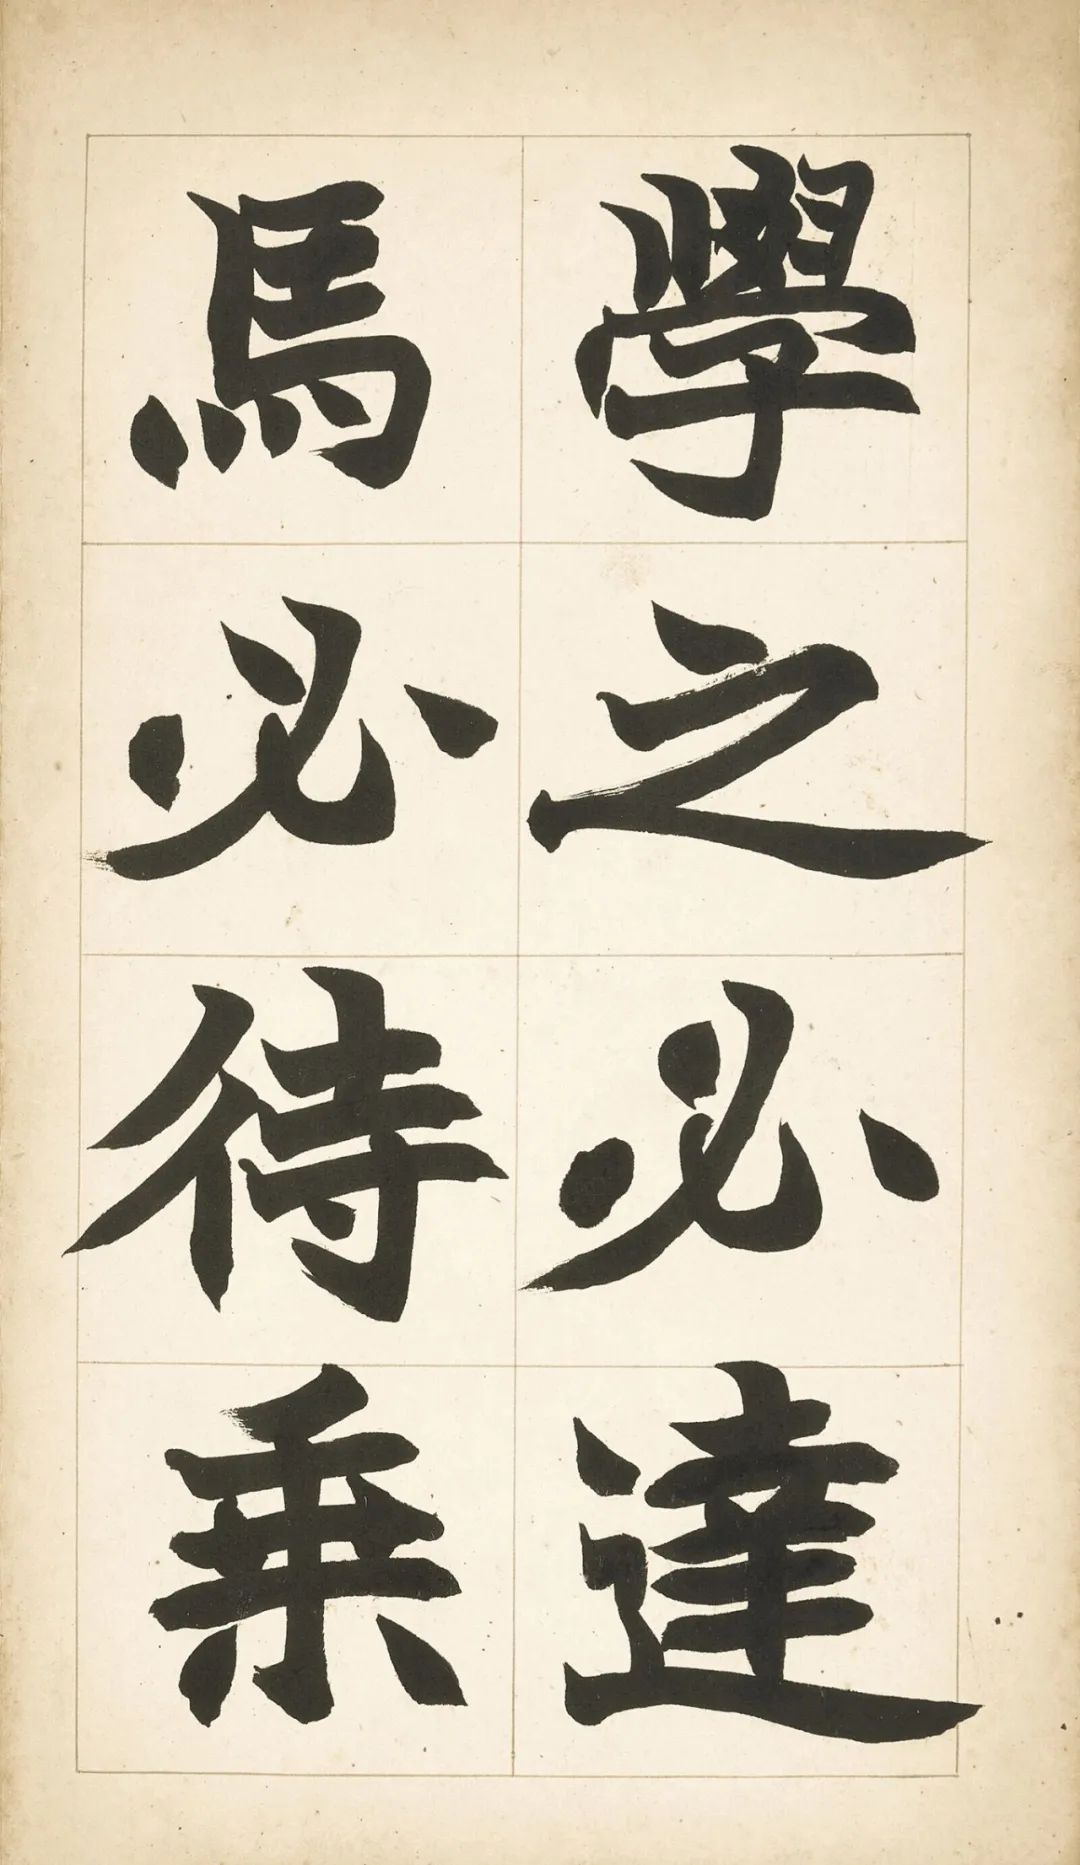 學之必達
馬必待乗